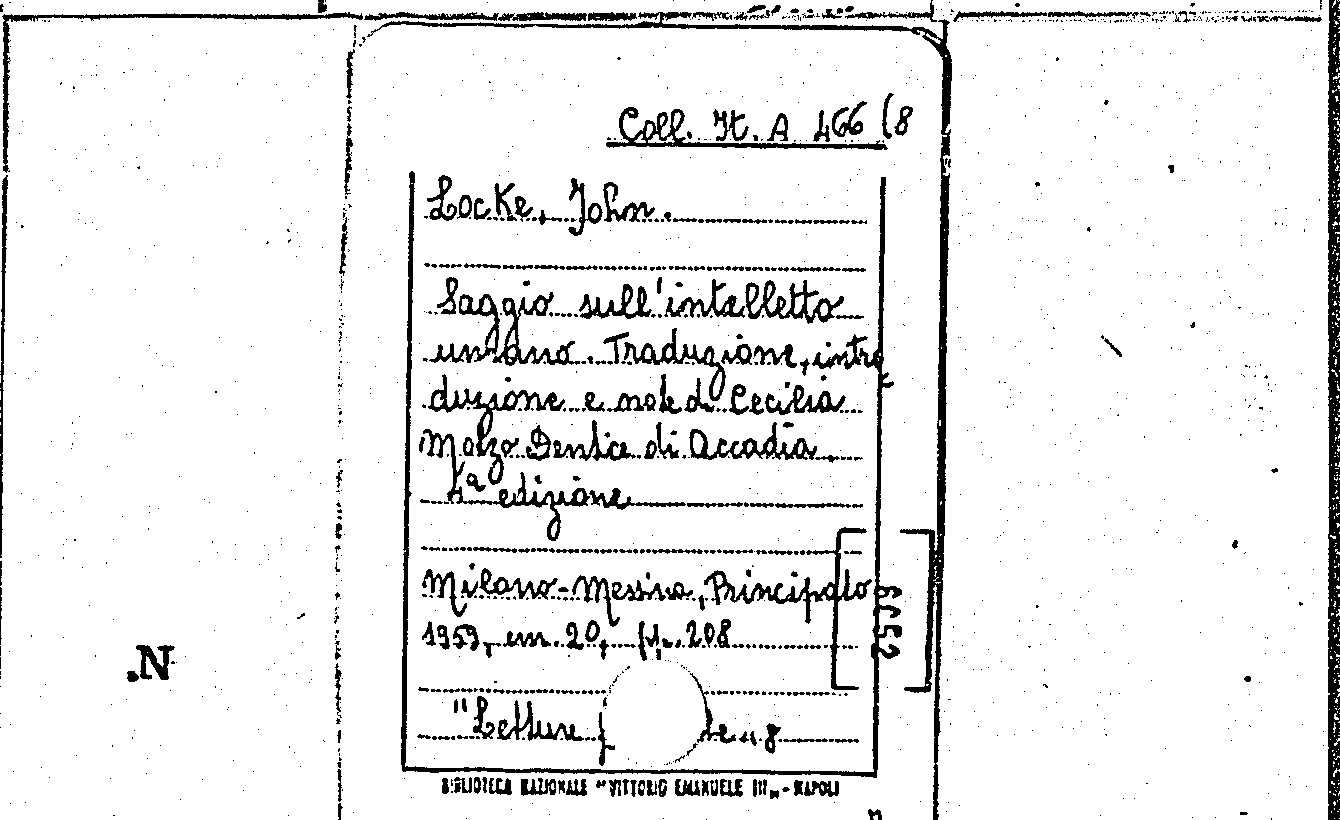 Coll. It. A 466 (8
Locke, John.
Saggio sull'intelletto
umano. Traduzione, intro
duzione e note di Cecilia
Motzo Dentice di Accadia.
4ª edizione
Milano-Messina, Principato
1959, cm. 20, pp. 208
"Letture
8
BIBLIOTECA NAZIONALE "VITTORIO EMANUELE III„ - NAPOLI
.N